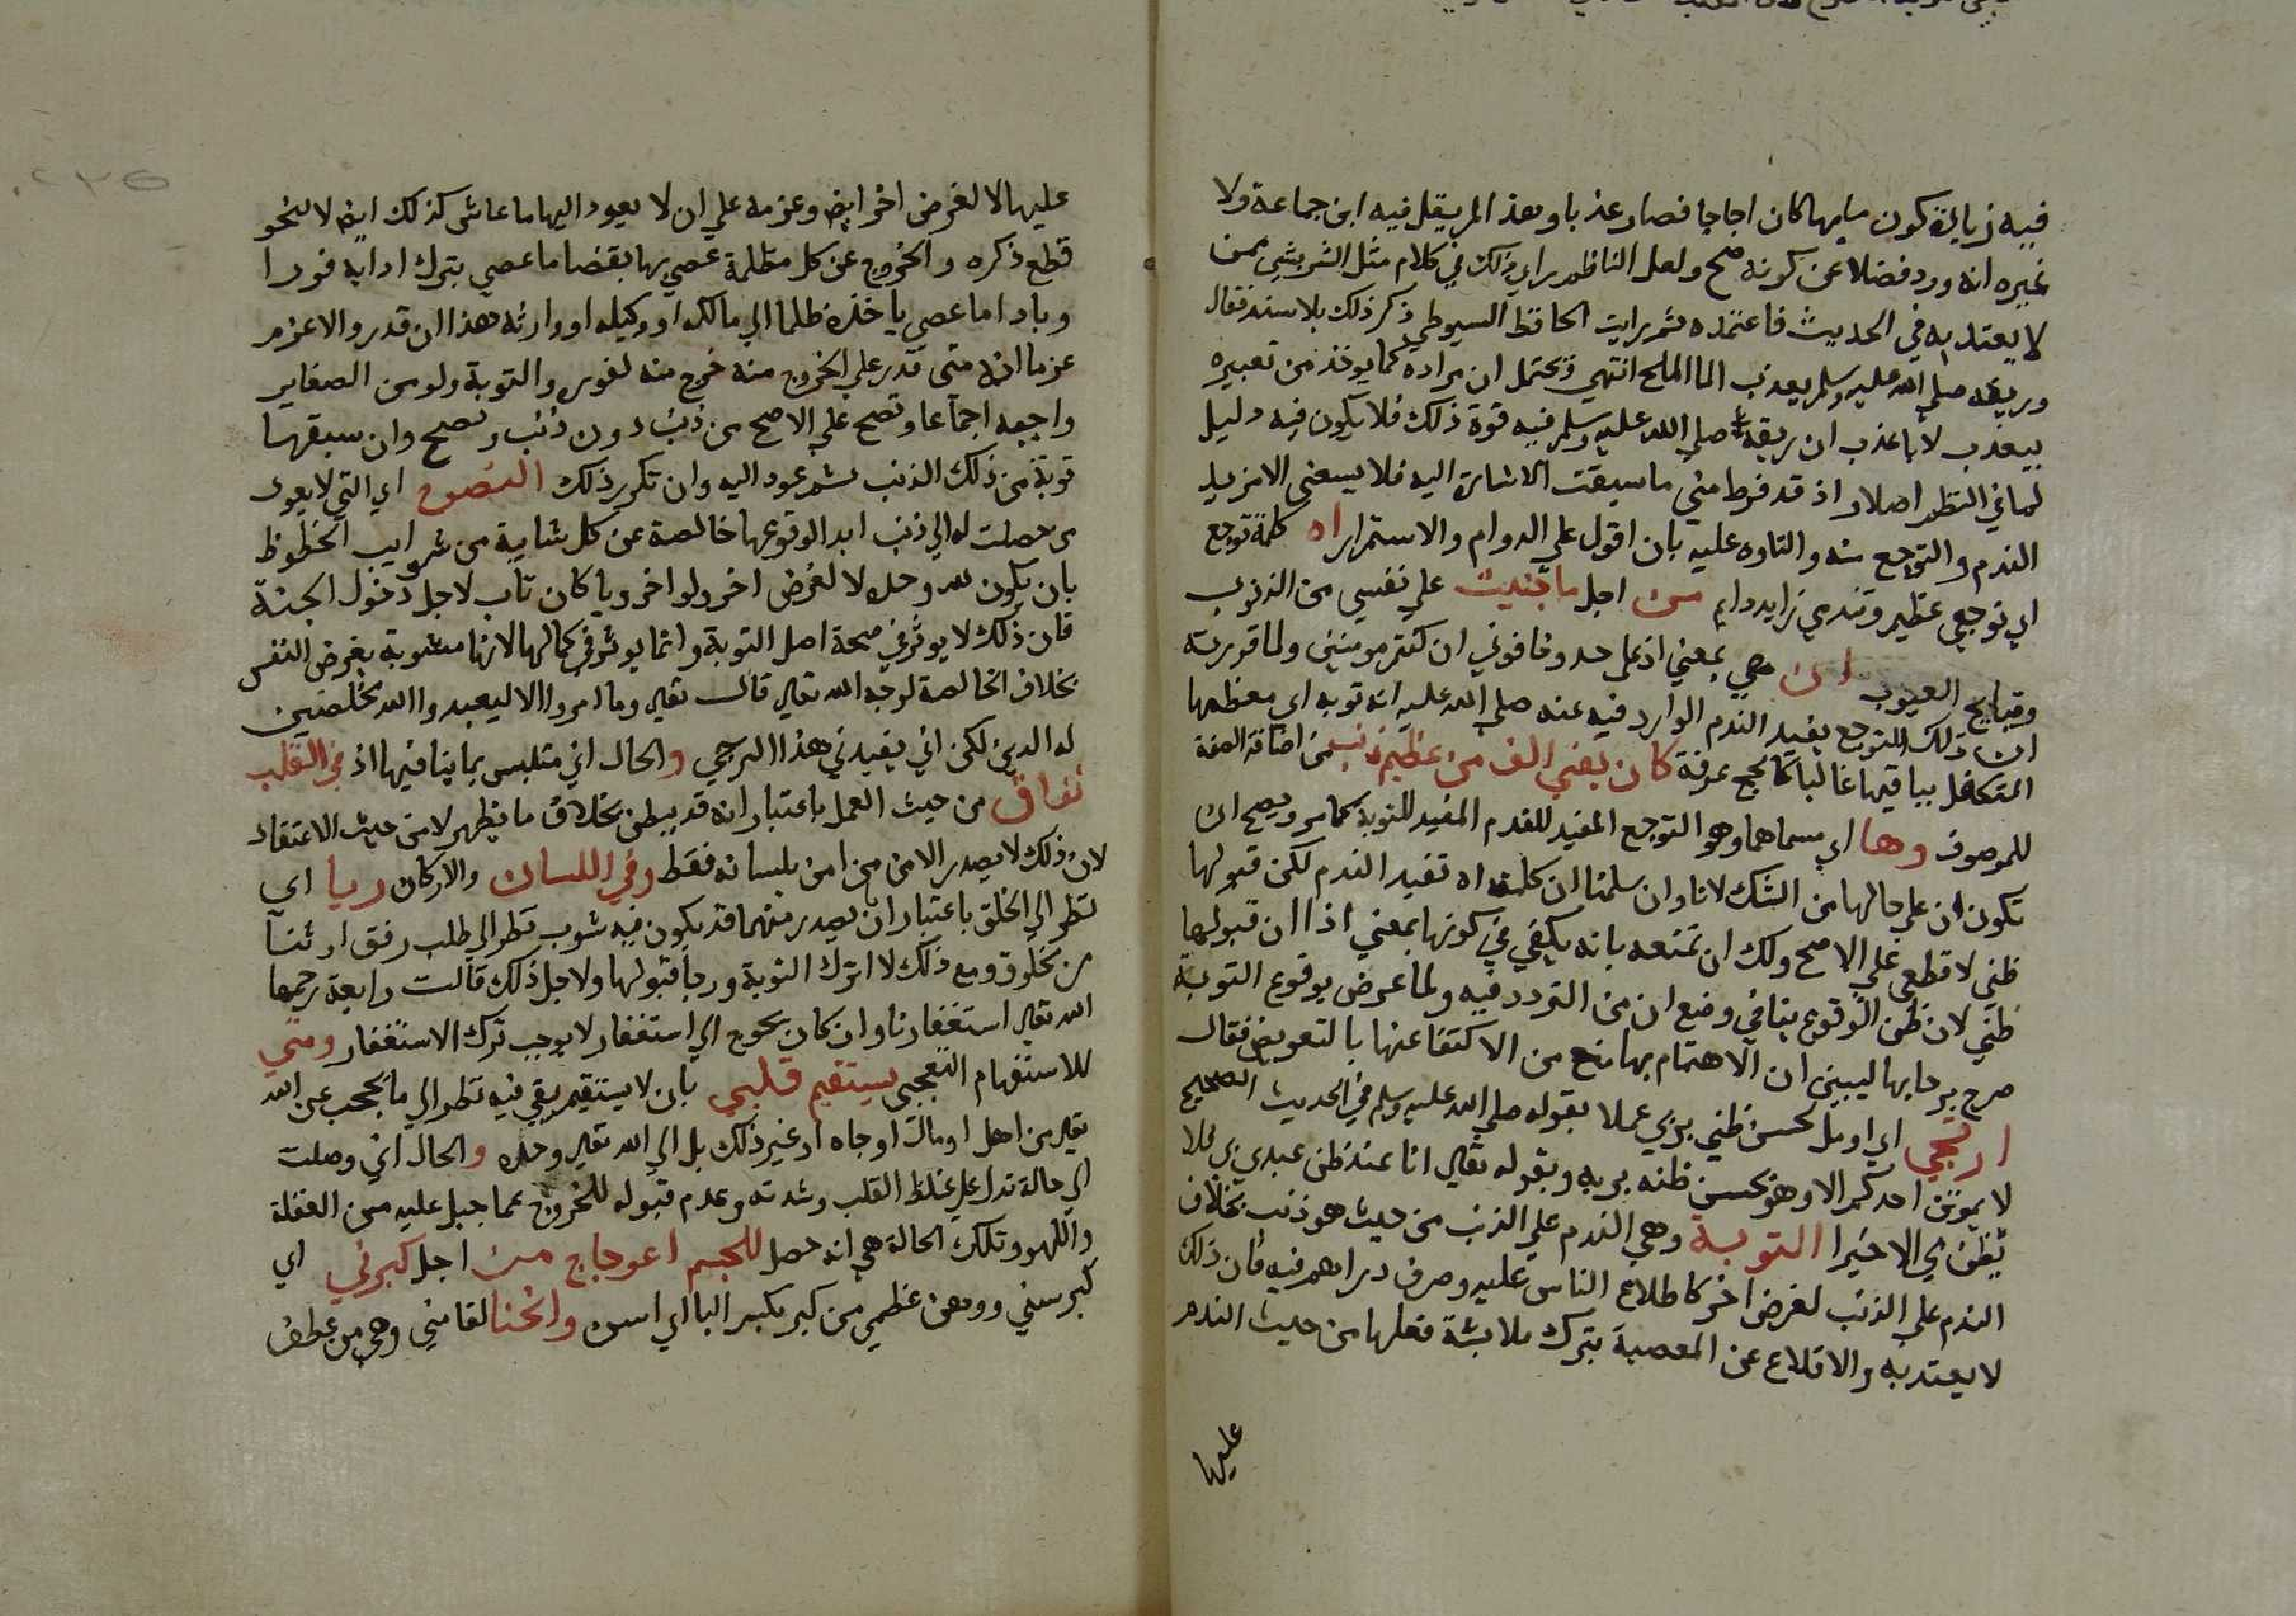 فيه زيالة كون مايها كان اجاجا فصار عذبا وهذا لم ينقل فيه ابن جماعة ولا
غيره انه ورد فضلا عن كونه صح ولعل الناظم راى ذلك في كلام مثل الشربشي ممن
لا يعتد به في الحديث فاعتمده ثم رايت الحافظ السيوطي ذكر ذلك بلا سند فقال
وريقه صلى الله عليه وسلم يعذب الما الملح انتهى ويحتمل ان مراده كما يوخذ من تعبيره
بيعذب لا باعذب ان ريقه صلى الله عليه وسلم فيه قوة ذلك فلا يكون فيه دليل
لما في النظم اصلا و اذ قد فرط مني ما سبقت الاشارة اليه فلا يسعني الا مزيد
الندم والتوجع منه والتاوه عليه بان اقول على الدوام والاستمرار اه كلمة توجع
اي توجعي عظيم وتندمي زايد دايم من اجل ما جنيت على نفسي من الذنوب
وقبايح العيوب ان هي بمعنى اذ على حد وخافوني ان كنتم مومنين ولما قررته
ان ذلك التوجع يفيد الندم الوارد فيه عنه صلى الله عليه انه توبه اي معظمها
المتكفل بباقيها غالبا كالحج عرفة كان يغني الف من عظيم ذنب من اضافة الصفة
للموصوف وها اي مسماهما وهو التوجع المفيد للندم المفيد للتوبة كما مر ويصح ان
تكون ان على حالها من الشك لانا وان سلمنا ان كلمة اه تفيد الندم لكن قبولها
ظني لا قطعي على الاصح ولك ان تمنعه بانه يكفي في كونها بمعنى اذا ان قبولها
ظني لان ظن الوقوع ينافي وضع ان من التردد فيه ولما عرض بوقوع التوبة
صرح برجايها ليبين ان الاهتمام بها منع من الاكتفا عنها بالتعويض فقال
ارتجي اي اومل لحسن ظني بربي عملا بقوله صلى الله عليه وسلم في الحديث الصحيح
لا يموتن احدكم الا وهو يحسن ظنه بربه وبقوله تعالى انا عند ظن عبدي بي فلا
يظن بي الا خيرا التوبة وهي الندم على الذنب من حيث هو ذنب بخلاف
الندم على الذنب لغرض اخر كاطلاع الناس عليه وصرف دراهم فيه فان ذلك
لا يعتد به والاقلاع عن المعصية بترك ملابسة فعلها من حيث الندم
عليها
عليها لا لغرض اخر ايضا وعزمه على ان لا يعود اليها ما عاش كذلك ايضا لا لنحو
قطع ذكره والخروج عن كل مظلمة عصى بها بقضا ما عصى بترك ادايه فورا
وباداء ما عصى ياخذه ظلما الى مالكه او وكيله او وارثه هذا ان قدر والا عزم
عزما انه متى قدر على الخروج منه خرج منه لفوره والتوبة ولو من الصغاير
واجبه اجماعا وتصح على الاصح من ذنب دون ذنب وتصح وان سبقها
توبة من ذلك الذنب ثم عود اليه وان تكرر ذلك النصوح اي التي لا يعود
من حصلت له الى ذنب ابدا لوقوعها خالصة عن كل شايبة من شوايب الحظوظ
بان يكون لله وحده لا لغرض اخر ولو اخرويا كان تاب لاجل دخول الجنة
فان ذلك لا يوثر في صحة اصل التوبة وانما يوثر في كمالها لانها مشوبة بغرض النفس
بخلاف الخالصة لوجه الله تعالى قال تعالى وما امروا الا ليعبدوا الله مخلصين
له الدين لكن اني يفيدني هذا الترجي والحال اني متلبس بما ينافيها اذ في القلب
نفاق من حيث العمل باعتبار انه قد يبطن بخلاف ما يظهر لا من حيث الاعتقاد
لان ذلك لا يصدر الا ممن امن بلسانه فقط وفي اللسان والاركان ريا اي
نظر الى الخلق باعتبار ان يصدر منهما قد يكون فيه شوب نظر الى طلب رفق او ثنا
من مخلوق ومع ذلك لا اترك التوبة ورجا قبولها ولاجل ذلك قالت رابعة رحمها
الله تعالى استغفارنا وان كان يحوج الى استغفار لا يوجب ترك الاستغفار ومتى
للاستفهام التعجبي يستقيم قلبي بان لا يستقيم بقى فيه نظر الى ما يحجب عن الله
تعالى من اهل او مال او جاه او غير ذلك بل الى الله تعالى وحده والحال اني وصلت
الى حالة تدل على غلظ القلب وشدته وعدم قبوله للخروج عما جبل عليه من الغفلة
واللهو وتلك الحالة هي انه حصل للجسم اعوجاج من اجل كبرتي اي
كبر سني ووهن عظمي من كبر بكسر البا اي اسن وانحنا لقامتي وهي من عطف